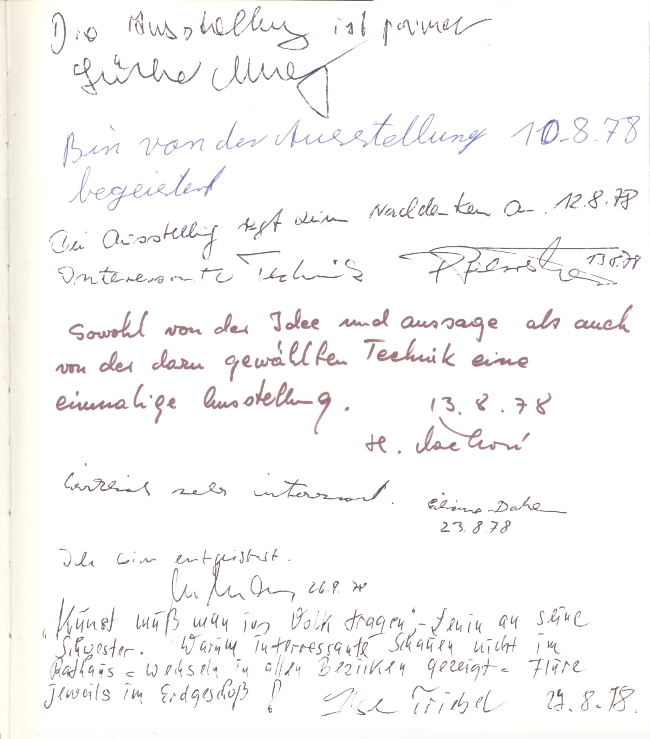 Die Ausstellung ist prima
Bin von der Ausstellung 10.8.78
begeistert
Die Ausstellung regt zum Nachdenken an. 12.8.78
Interessante Technik 13.8.78
Sowohl von der Idee und aussage als auch
von der dazu gewählten Technik eine
einmalige Ausstellung.
13.8.78
H.
sehr interessant.
23.8.78
Ich bin entgeistert.
26.8.78
"Kunst muß man ins Volk tragen", - Lenin an seine
Schwester. Warum interressante Schauen nicht im
Rathaus = wechseln in allen Bezirken gezeigt = Flure
jeweils im Erdgeschoß !
Ilse Triebel 27.8.78.